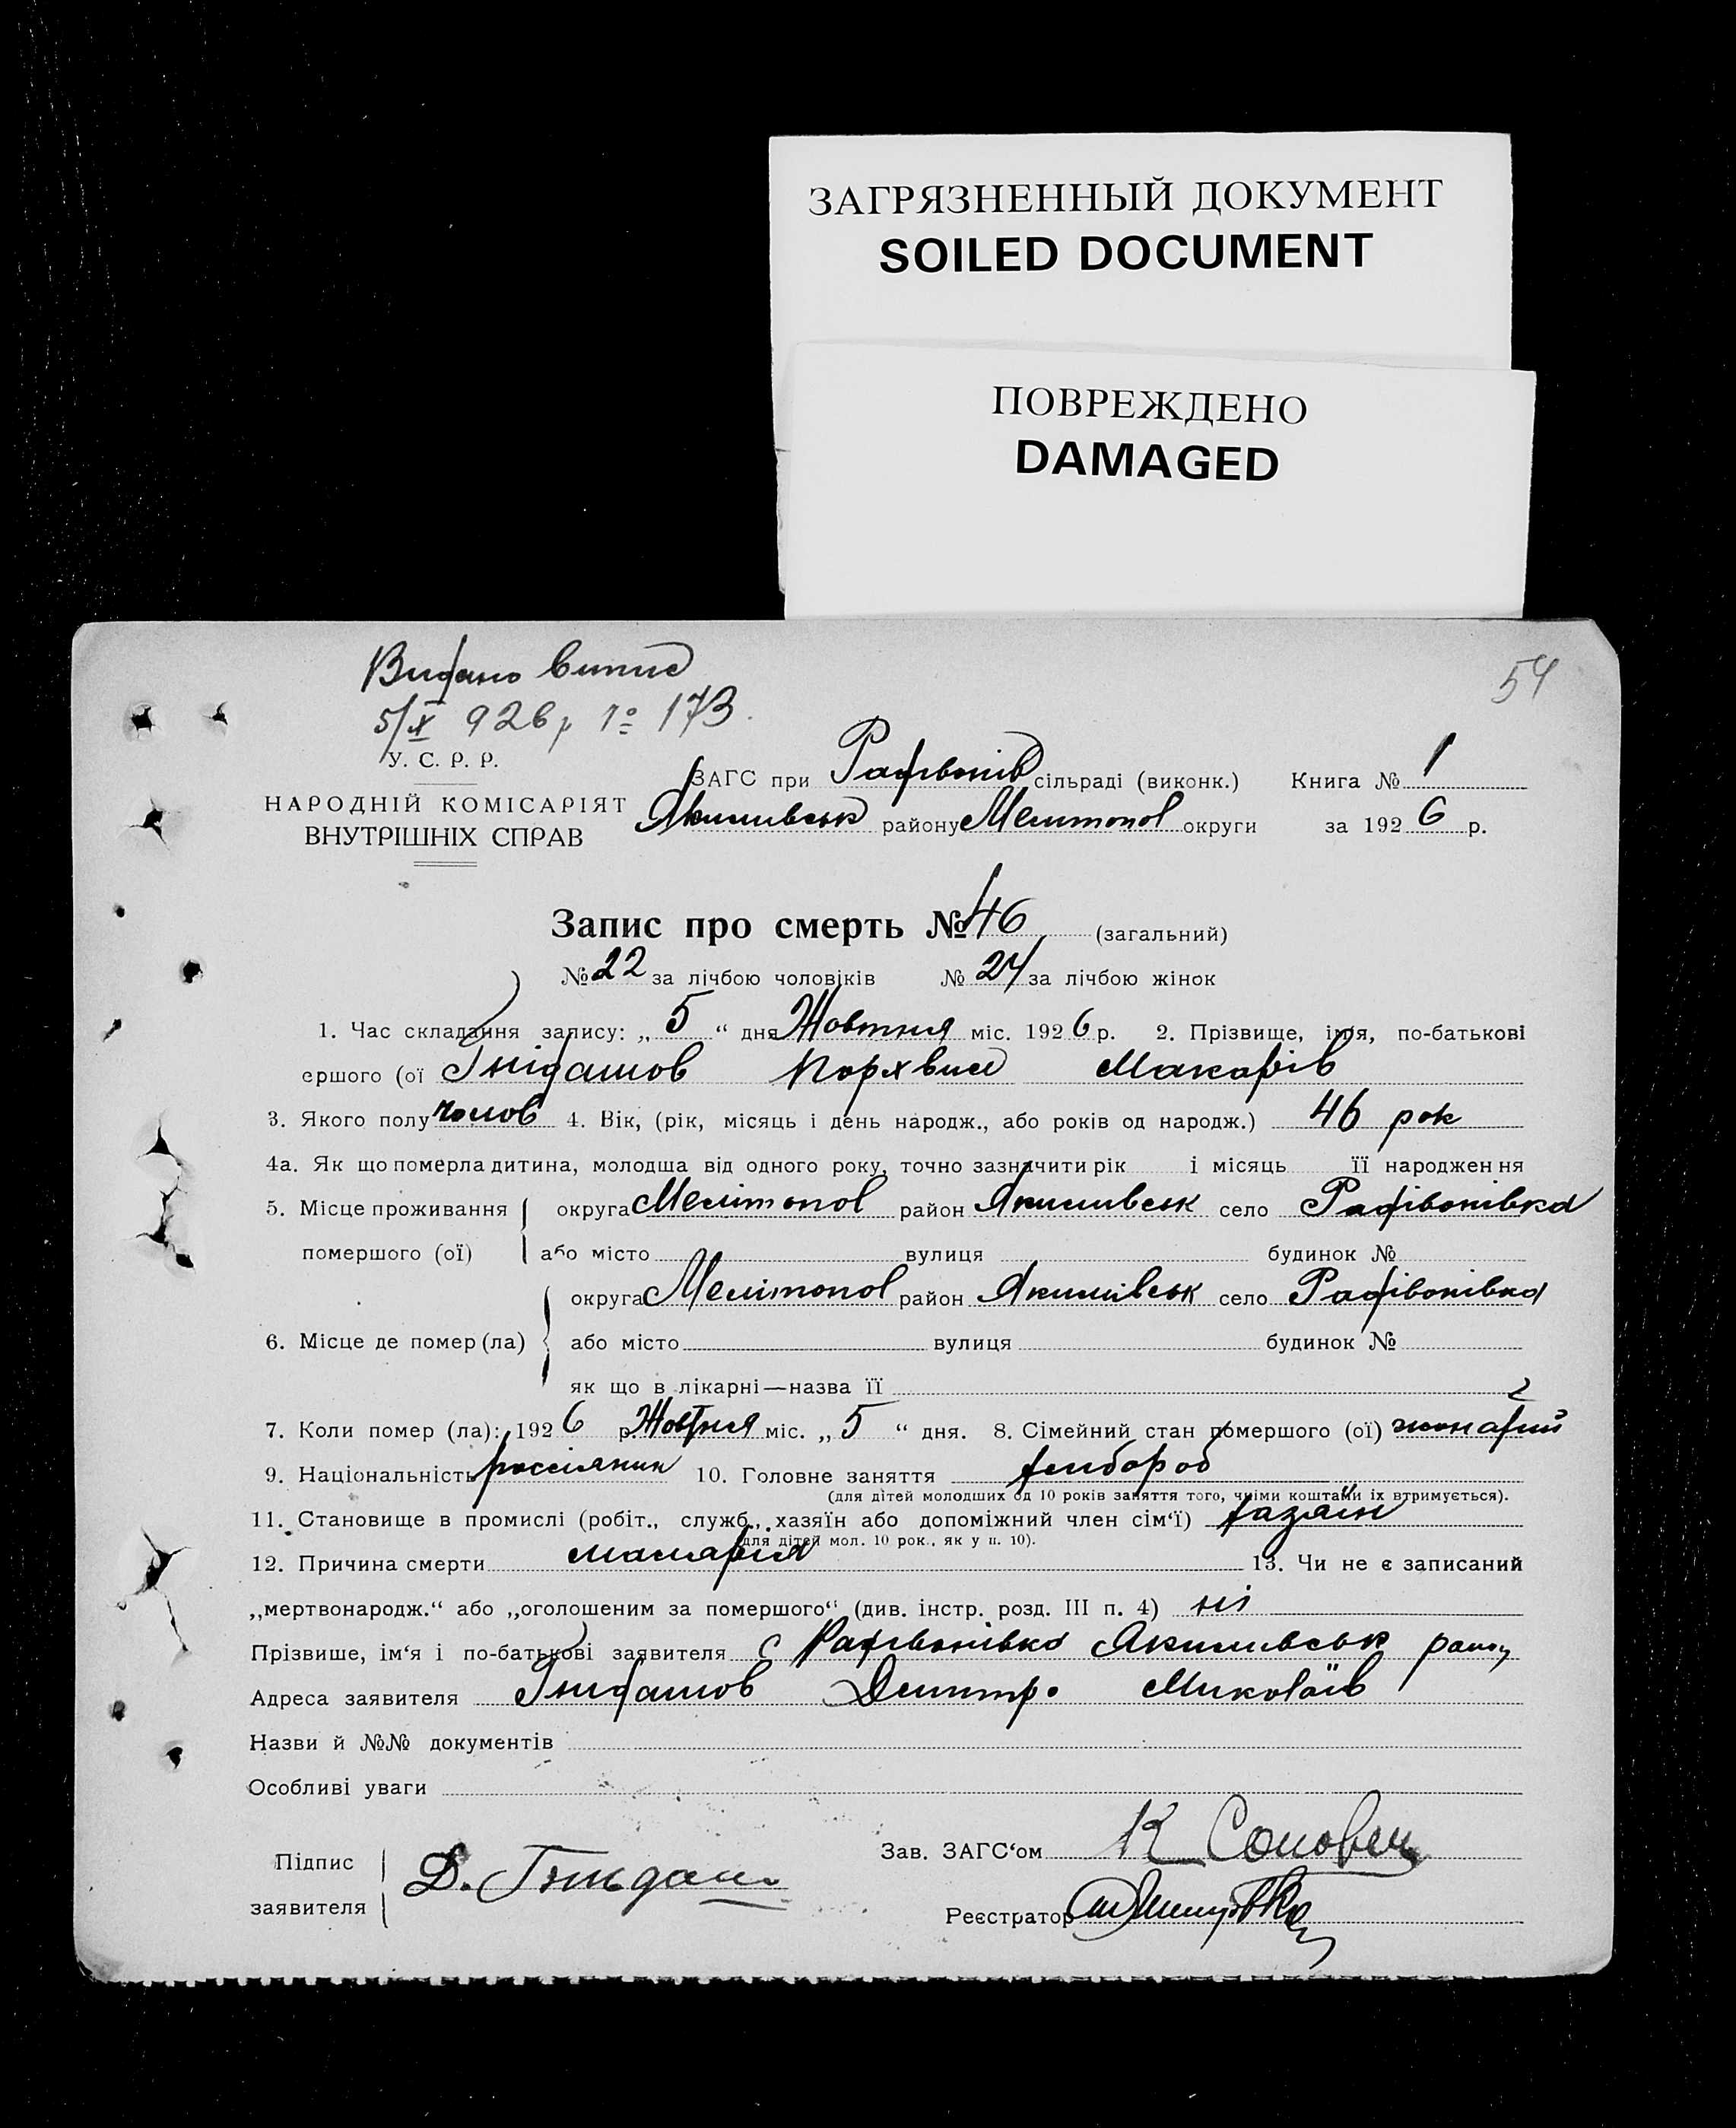 ЗАГРЯЗНЕННЫЙ ДОКУМЕНТ
SOILED DOCUMENT
ПОВРЕЖДЕНО
DAMAGED
Видано випис
5/X 926 р № 173.
54
У. С. Р. Р.
НАРОДНІЙ КОМІСАРІЯТ
ВНУТРІШНІХ СПРАВ
ЗАГС при сільраді (виконк.) Книга № 1
Якимивськ району Мелитопол округи за 192 6 р.
Запис про смерть № 46 (загальний)
№ 22 за лічбою чоловіків № 24 за лічбою жінок
1. Час складання запису: „ 5 “ дня Жовтня міс. 192 6 р. 2. Прізвище, імя, по-батькові
ершого (ої Гнідашов Макарів
3. Якого полу чолов 4. Вік, (рік, місяць і день народж., або років од народж.) 46 рок
4а. Як що померла дитина, молодша від одного року, точно зазначити рік і місяць її народження
5. Місце проживання округа Мелітопол район Якимивськ село
помершого (ої) або місто вулиця будинок №
округа Мелітопол район Якимівськ село
6. Місце де помер (ла) або місто вулиця будинок №
як що в лікарні—назва її
7. Коли помер (ла): 192 6 р. Жовтня міс. „ 5 “ дня. 8. Сімейний стан помершого (ої) жонатий
9. Національність россіянин 10. Головне заняття хлибороб
(для дітей молодших од 10 років заняття того, чиїми коштами їх втримується).
11. Становище в промислі (робіт., служб., хазяїн або допоміжний член сім‘ї) хазяїн
(для дітей мол. 10 рок., як у п. 10).
12. Причина смерти малярія 13. Чи не є записаний
„мертвонародж.“ або „оголошеним за помершого“ (див. інстр. розд. III п. 4) ні
Прізвише, ім‘я і по-батькові заявителя с Якимивськ району
Адреса заявителя Гнидашов Дмитро Миколаїв
Назви й №№ документів
Особливі уваги
Підпис
заявителя
Д. Гнидаш
Зав. ЗАГС‘ом К
Реєстратор